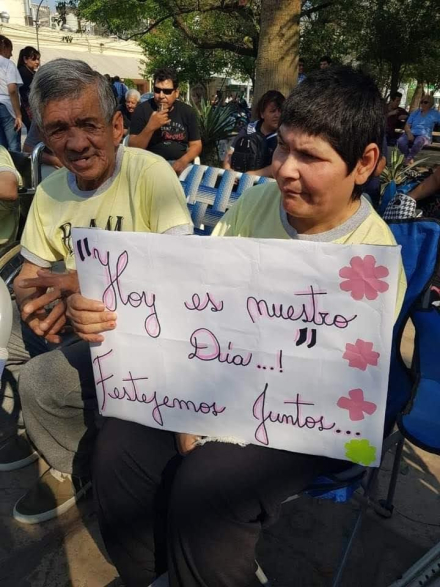 "Hoy es nuestro
Día...!"
Festejemos Juntos...